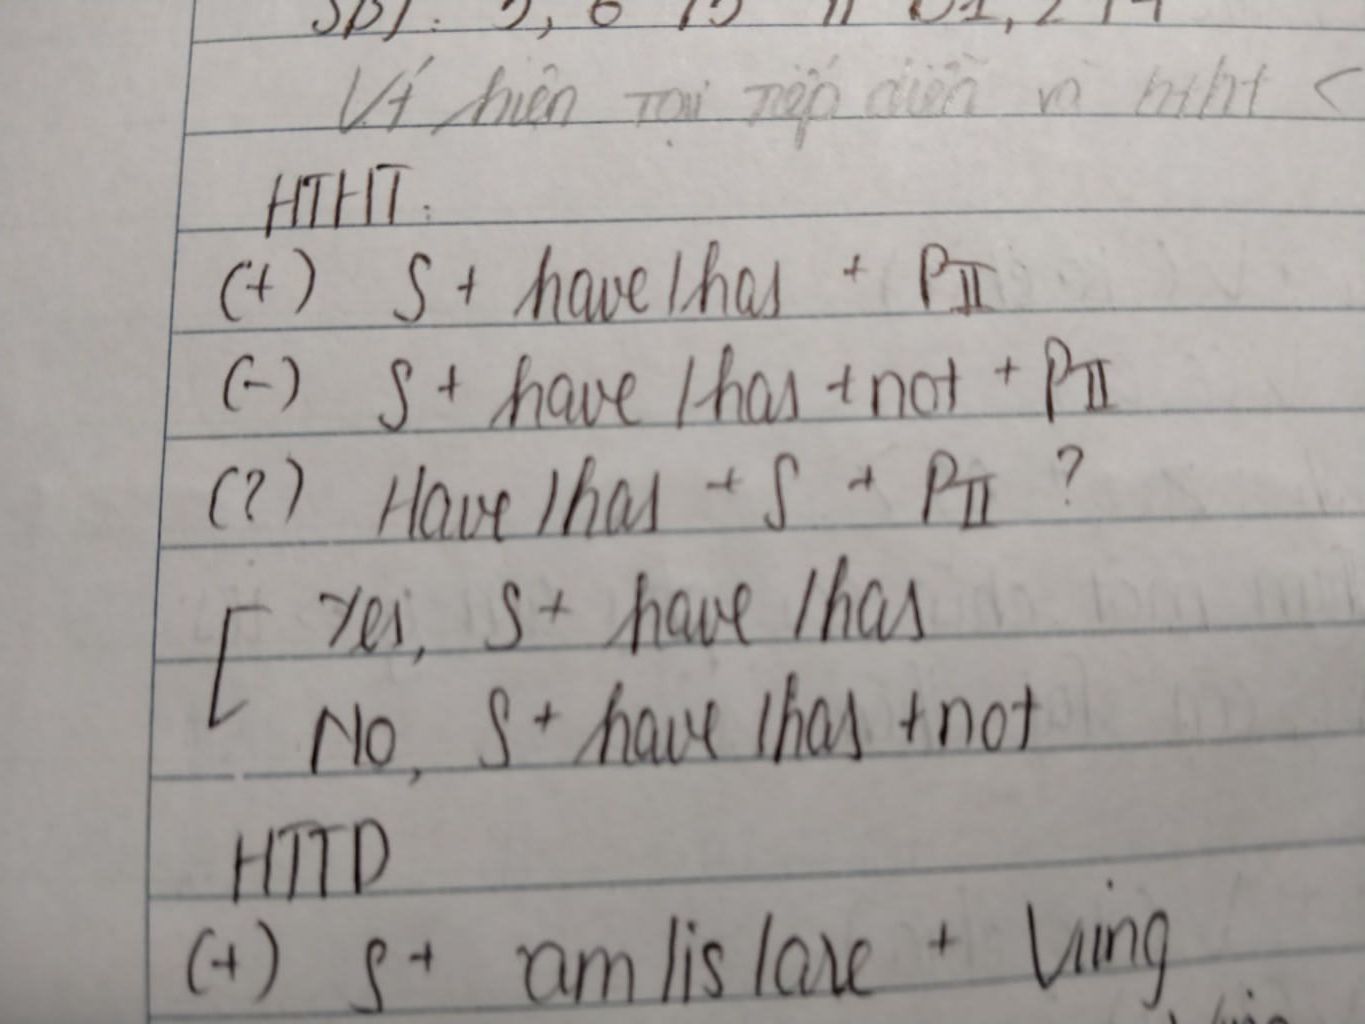 Vt hiện tại tiếp diễn và htht <
HTHT:
(+) S + have/has + PII
(-) S + have/has + not + PII
(?) Have/has + S + PII ?
Yes, S + have/has
No, S + have/has + not
HTTD
(+) S + am/is/are + Ving